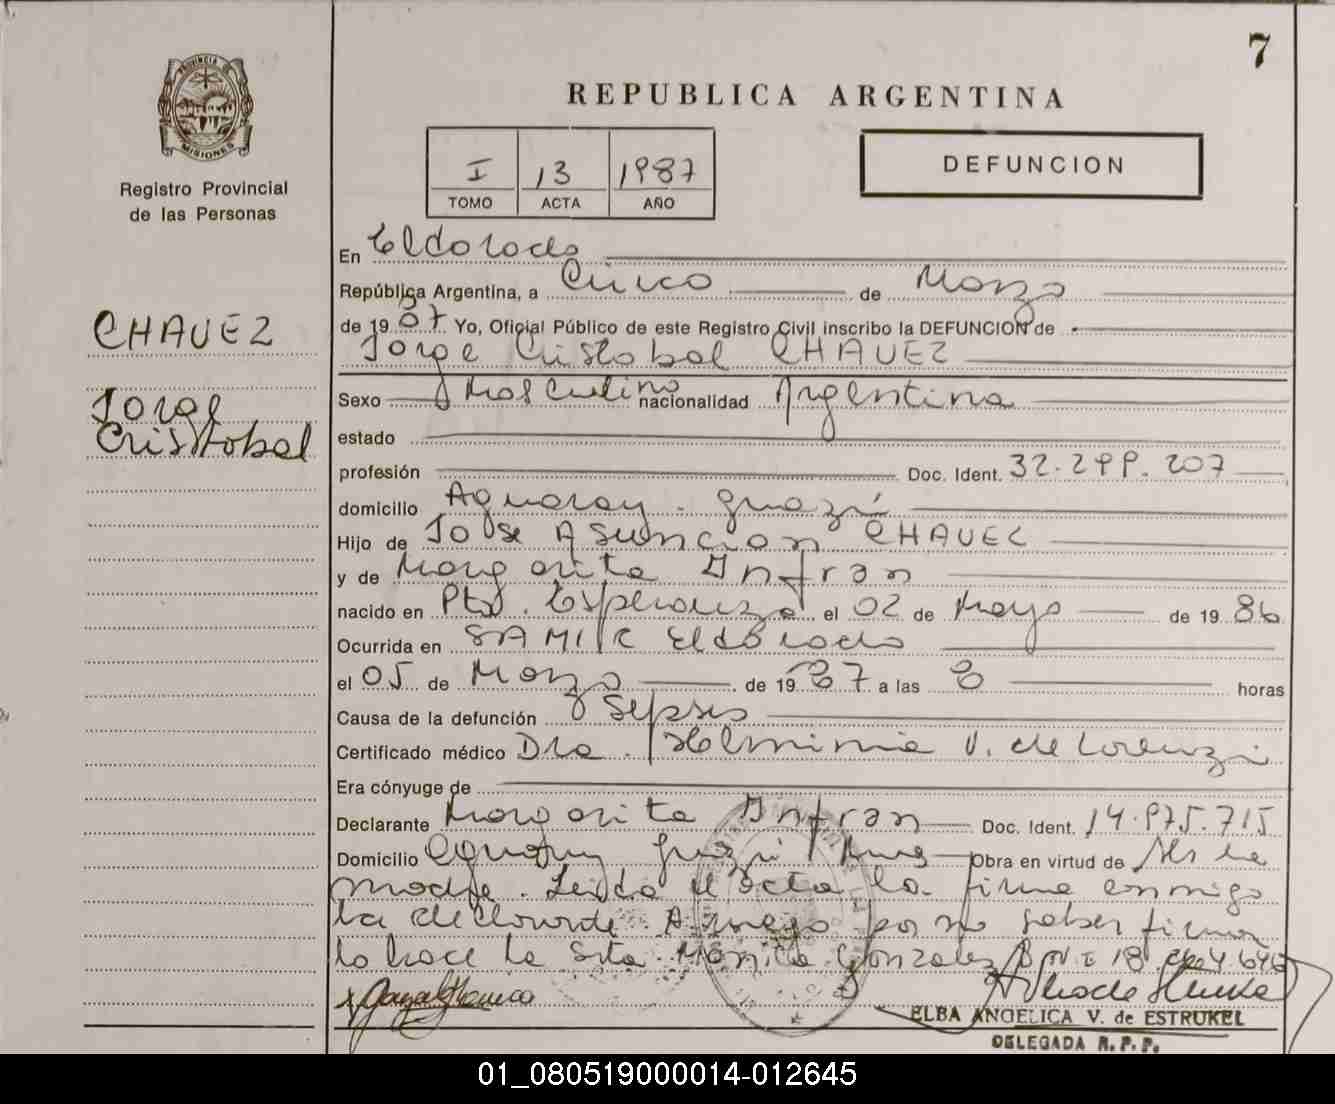 7
REPUBLICA ARGENTINA
PROVINCIA DE
MISIONES
Registro Provincial
de las Personas
I 13 1987
TOMO ACTA AÑO
DEFUNCION
CHAVEZ
Jorge
Cristobal
En Eldorado
República Argentina, a Cinco de Marzo
de 1987. Yo, Oficial Público de este Registro Civil inscribo la DEFUNCION de
Jorge Cristobal CHAVEZ
Sexo Masculino nacionalidad Argentina
estado
profesión Doc. Ident. 32.299.207
domicilio Aguaray-guazú
Hijo de José Asuncion CHAVEZ
y de Margarita Infran
nacido en Pto. Esperanza el 02 de Mayo de 1986
Ocurrida en SAMIC Eldorado
el 05 de Marzo de 1987 a las 8 horas
Causa de la defunción Sepsis
Certificado médico Dra. Herminia V. de Lorenzi
Era cónyuge de
Declarante Margarita Infran Doc. Ident. 14.975.715
Domicilio Aguaray guazú Obra en virtud de ser la
madre. Leida el acta la firma conmigo
la declarante. A ruego por no saber firmar
lo hace la Srta. Mónica Gonzalez D.N.I 18.
ELBA ANGELICA V. de ESTRUKEL
DELEGADA R. P. P.
01_080519000014-012645